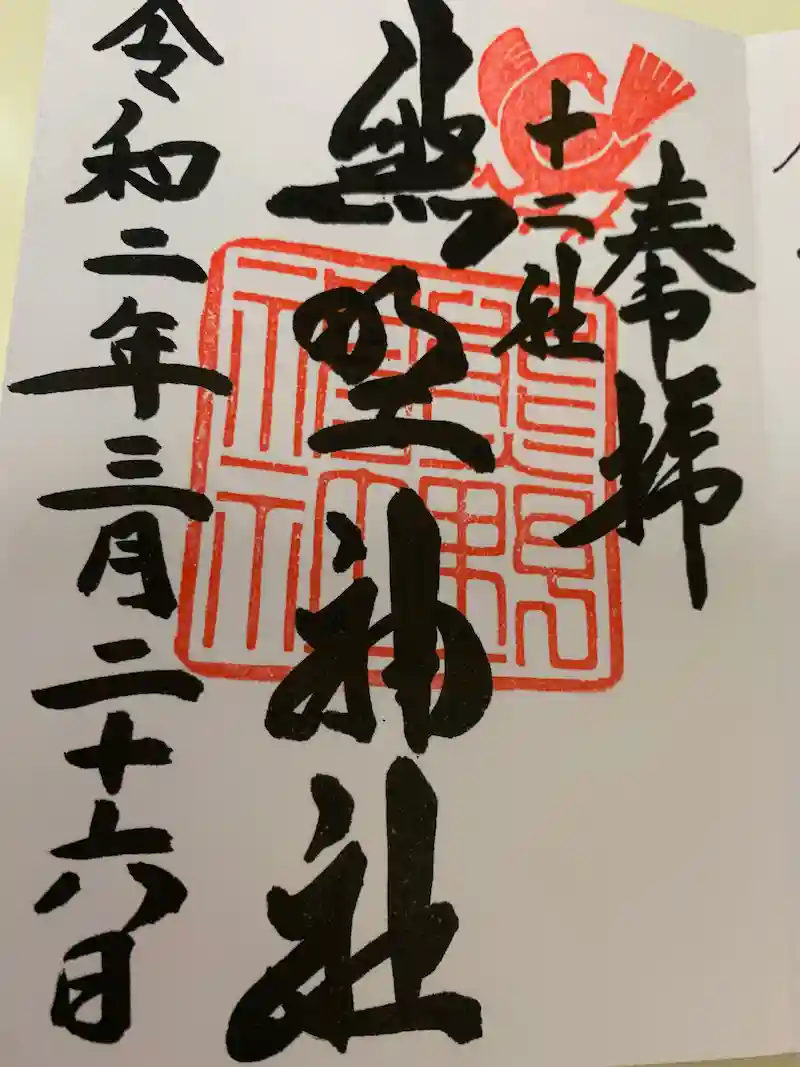 奉拝
十二社
熊野神社
熊野神社
令和二年三月二十六日